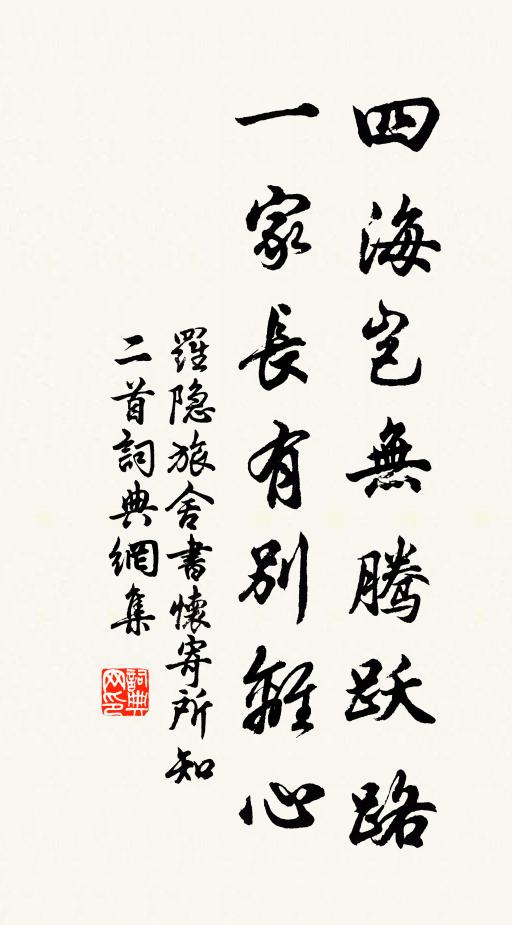 四海岂無腾跃路
一家長有别離心
羅隐旅舍書懷寄所知
二首詞典網集
詞典网印